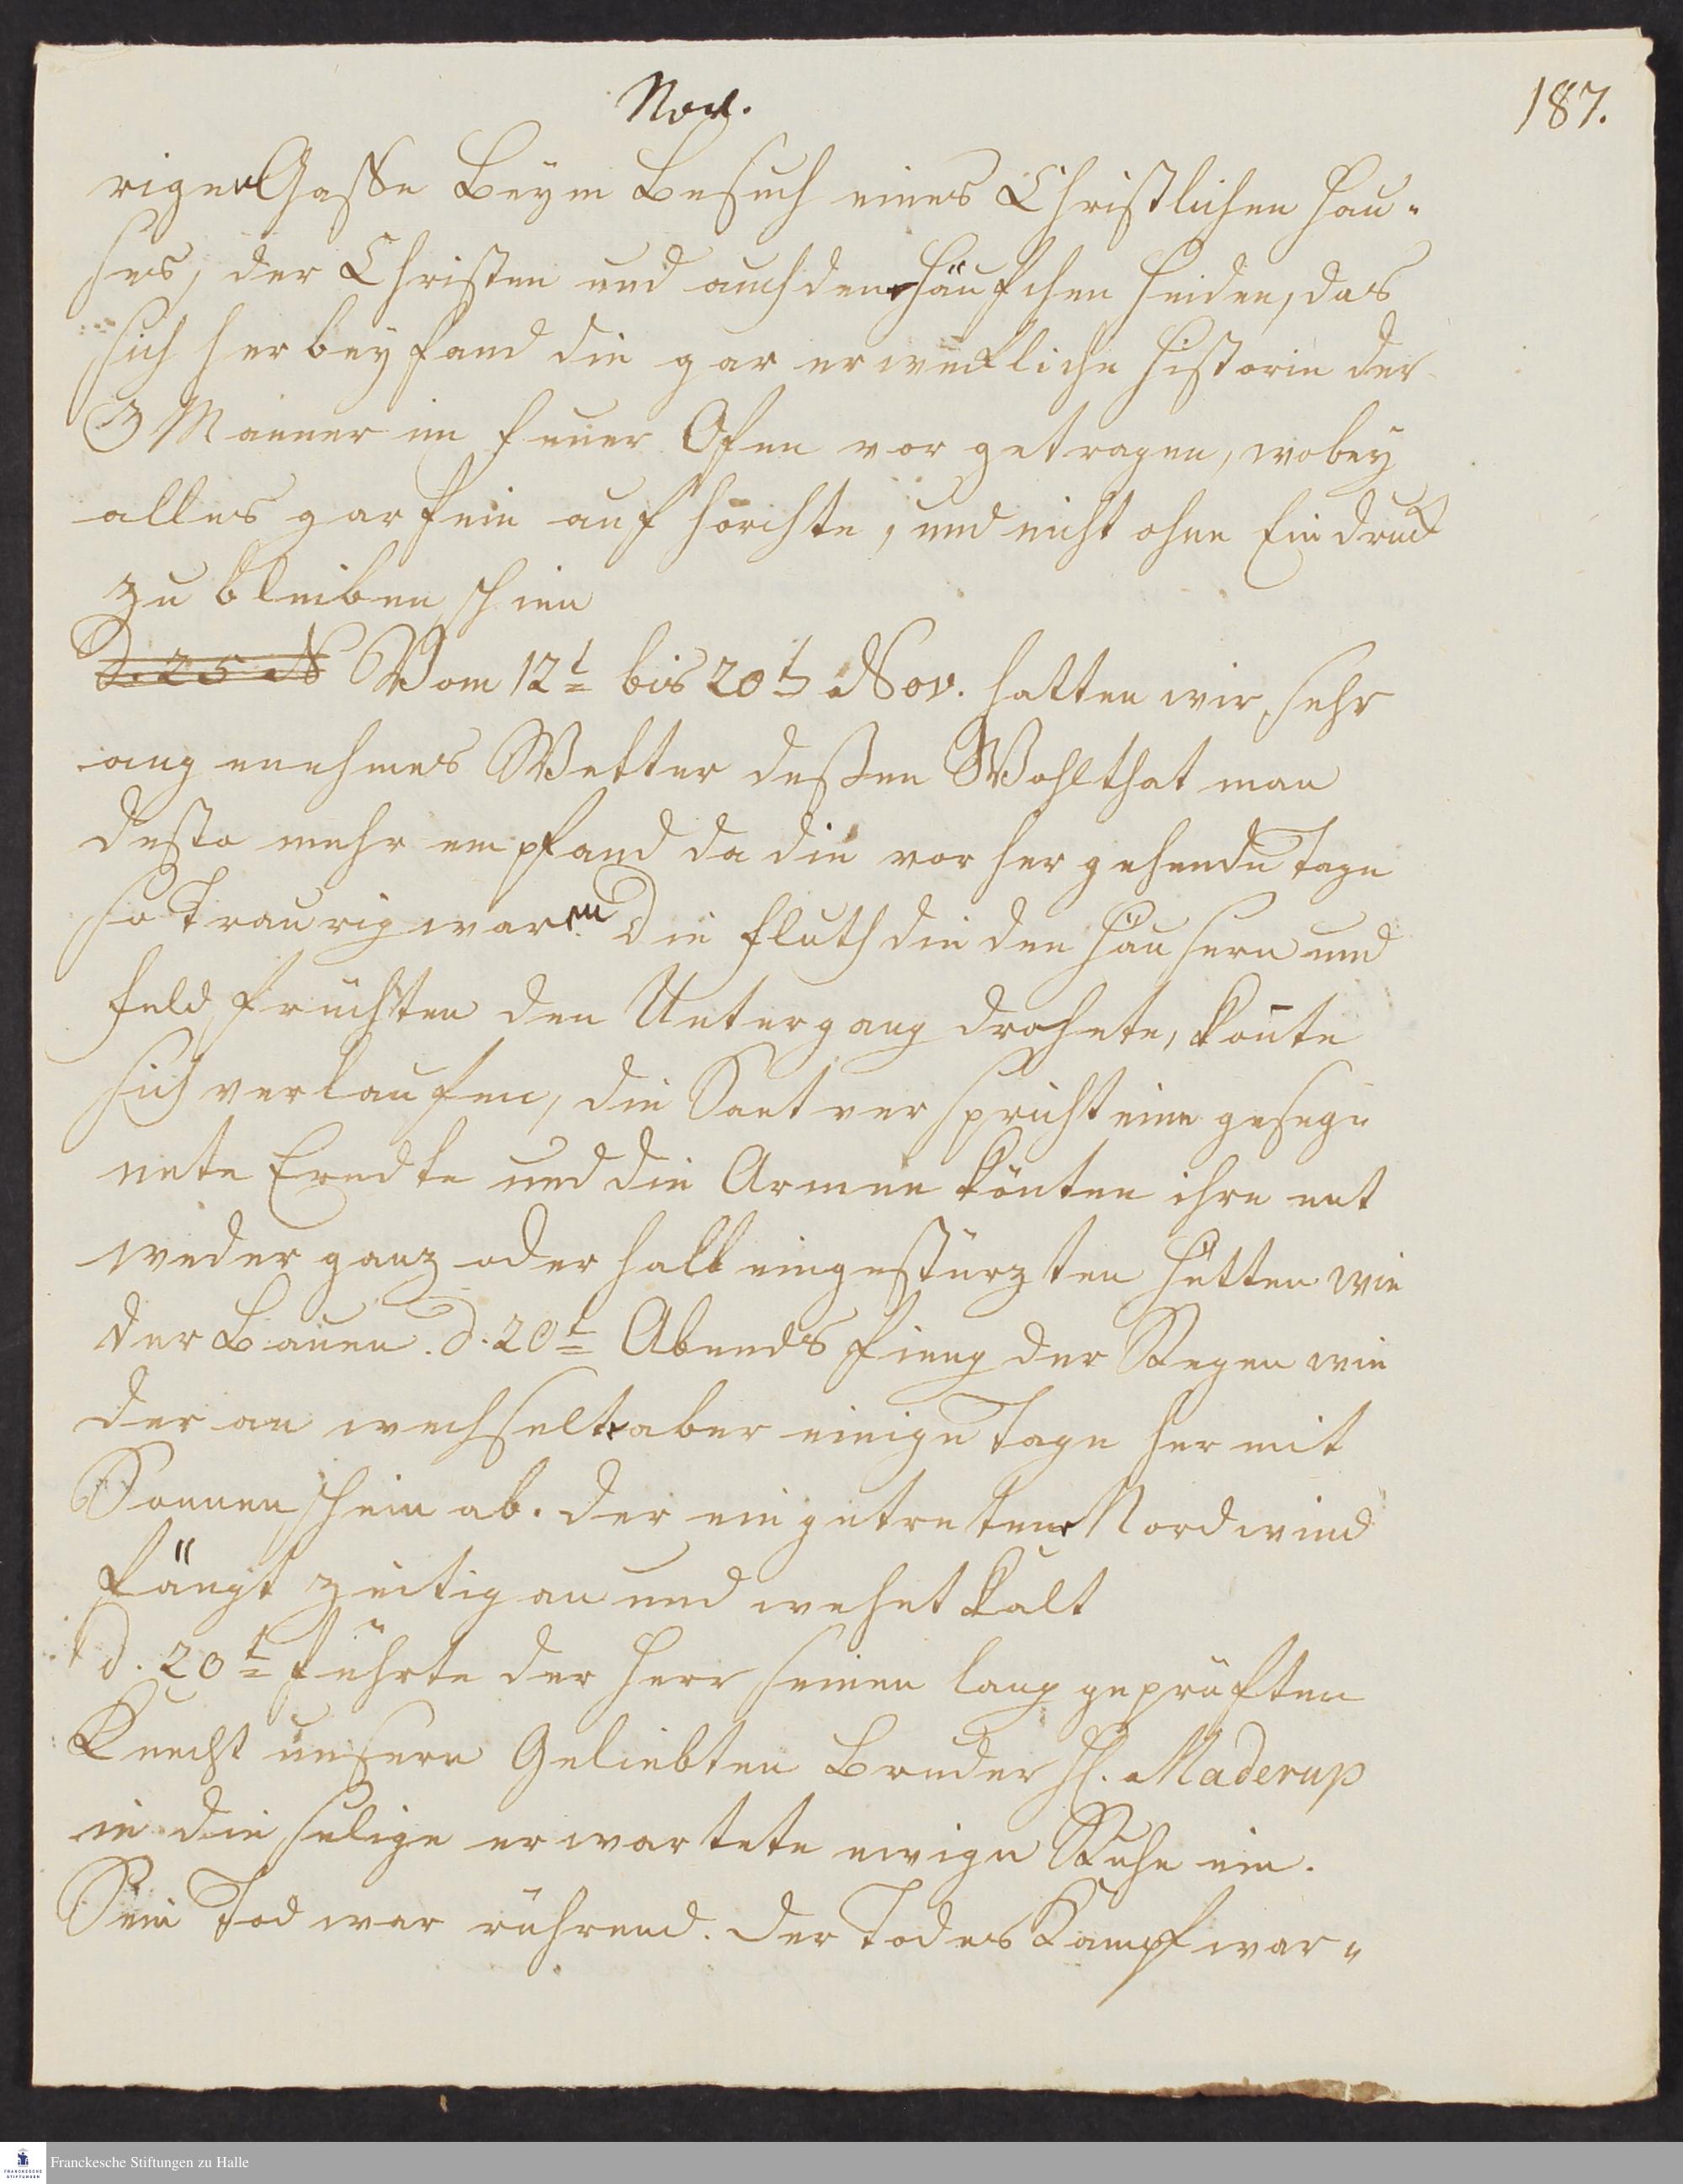 Nov.
187.
riger Gasse Beym Besuch eines Christlichen Hau-
ses, der Christen und auch dem Häufchen Heiden, das
sich herbey fand die gar erweckliche Historie der
3 Mäner im feuer Ofen vor getragen, wobey
alles gar fein auf horchte, und nicht ohne Eindruck
zu bleiben schien
D. 25 N Vom 12t bis 20t Nov. hatten wir sehr
angenehmes Wetter deßen Wohlthat man
desto mehr empfand da die vor her gehende Tage
so Traurig waren. Die Fluth die den Häusern und
Feld früchten den Untergang drohete, konte
sich verlaufen, die Saat verspricht eine geseg-
nete Erndte und die Armen könten ihre ent
weder ganz oder halb eingestürzten Hütten wie
der Bauen. d. 20t Abends fieng der Regen wie
der an wechselte aber einige Tage her mit
Sonnenschein ab. der ein getretene Nordwind
fängt zeitig an und wehet kalt
d. 20t führte der Herr seinen lang geprüften
Knecht unsern Geliebten Bruder H. Maderup
in die selige erwartete ewige Ruhe ein.
Sein Tod war rührend. der Todes Kampf war-
Franckesche Stiftungen zu Halle